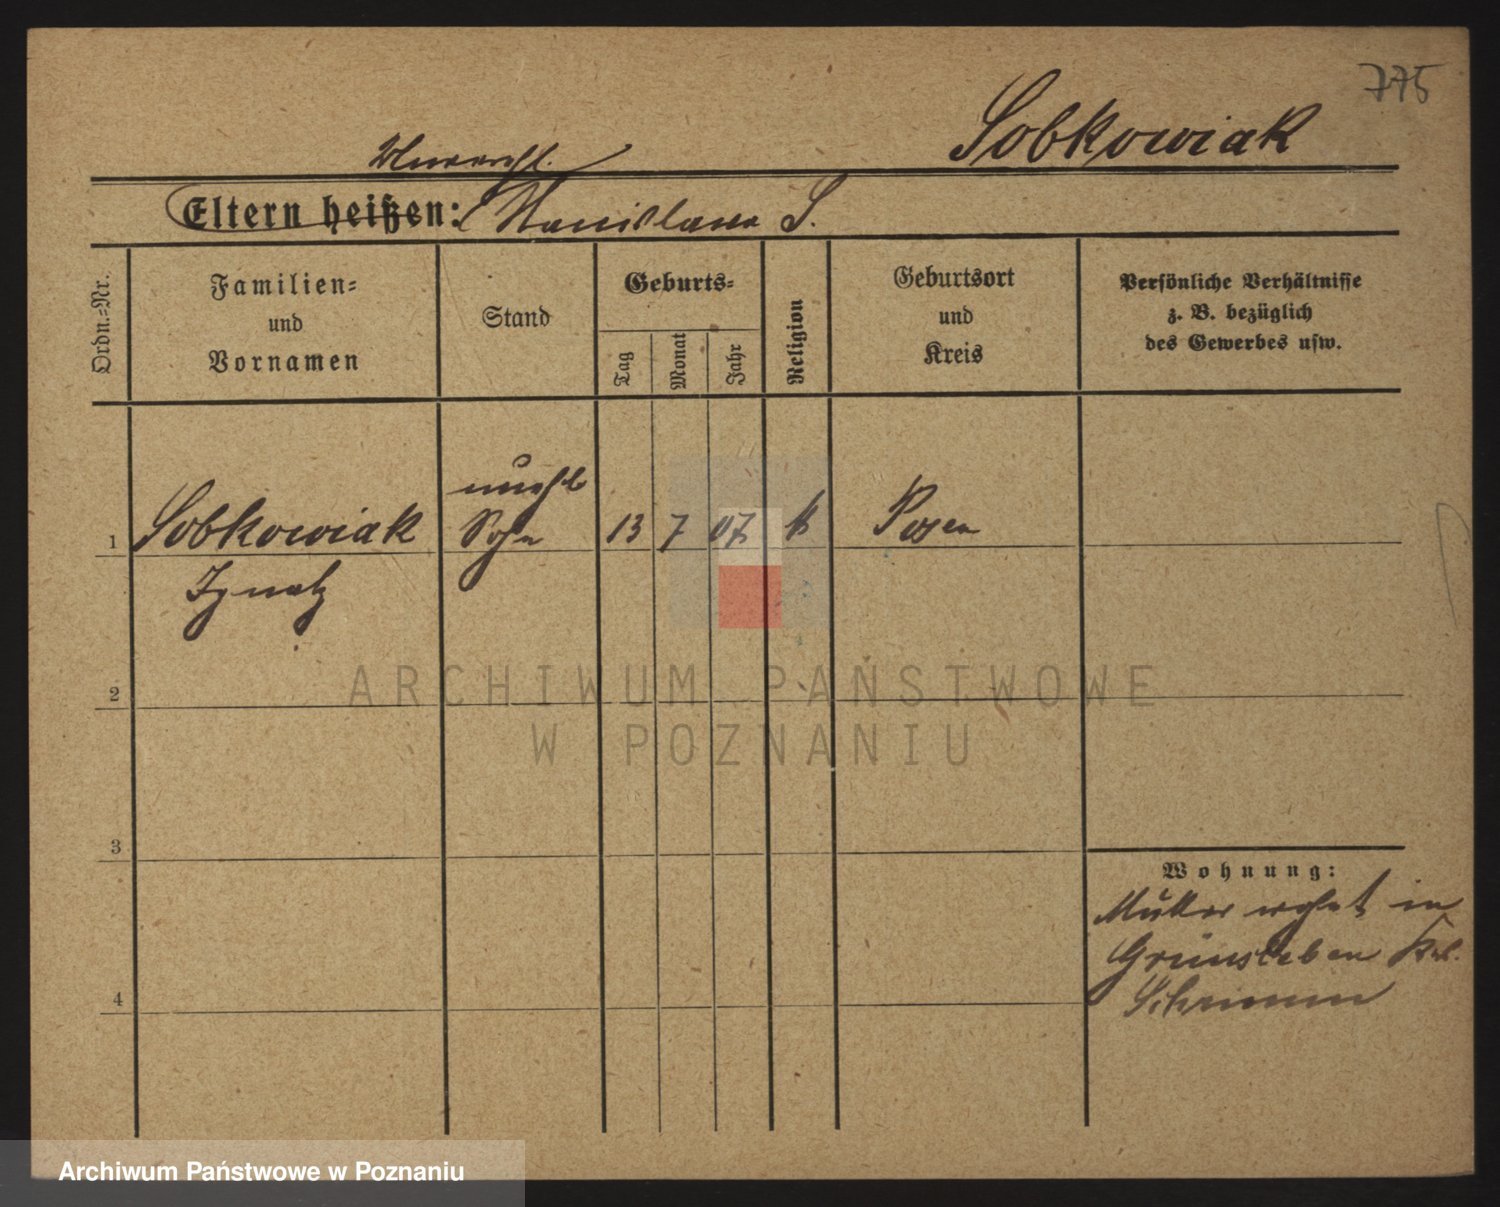 775
Sobkowiak
Eltern heißen: Stanislawa S.
Ordn.-Nr.
Familien-
und
Vornamen
Stand
Geburts-
Tag
Monat
Jahr
Religion
Geburtsort
und
Kreis
Persönliche Verhältnisse
z. B. bezüglich
des Gewerbes usw.
unehl
1 Sobkowiak Sohn 13 7 07 k Posen
Ignatz
2
3
4
Wohnung:
Mutter wohnt in
Grünsleben Krs.
Schrimm
ARCHIWUM PAŃSTWOWE
W POZNANIU
Archiwum Państwowe w Poznaniu